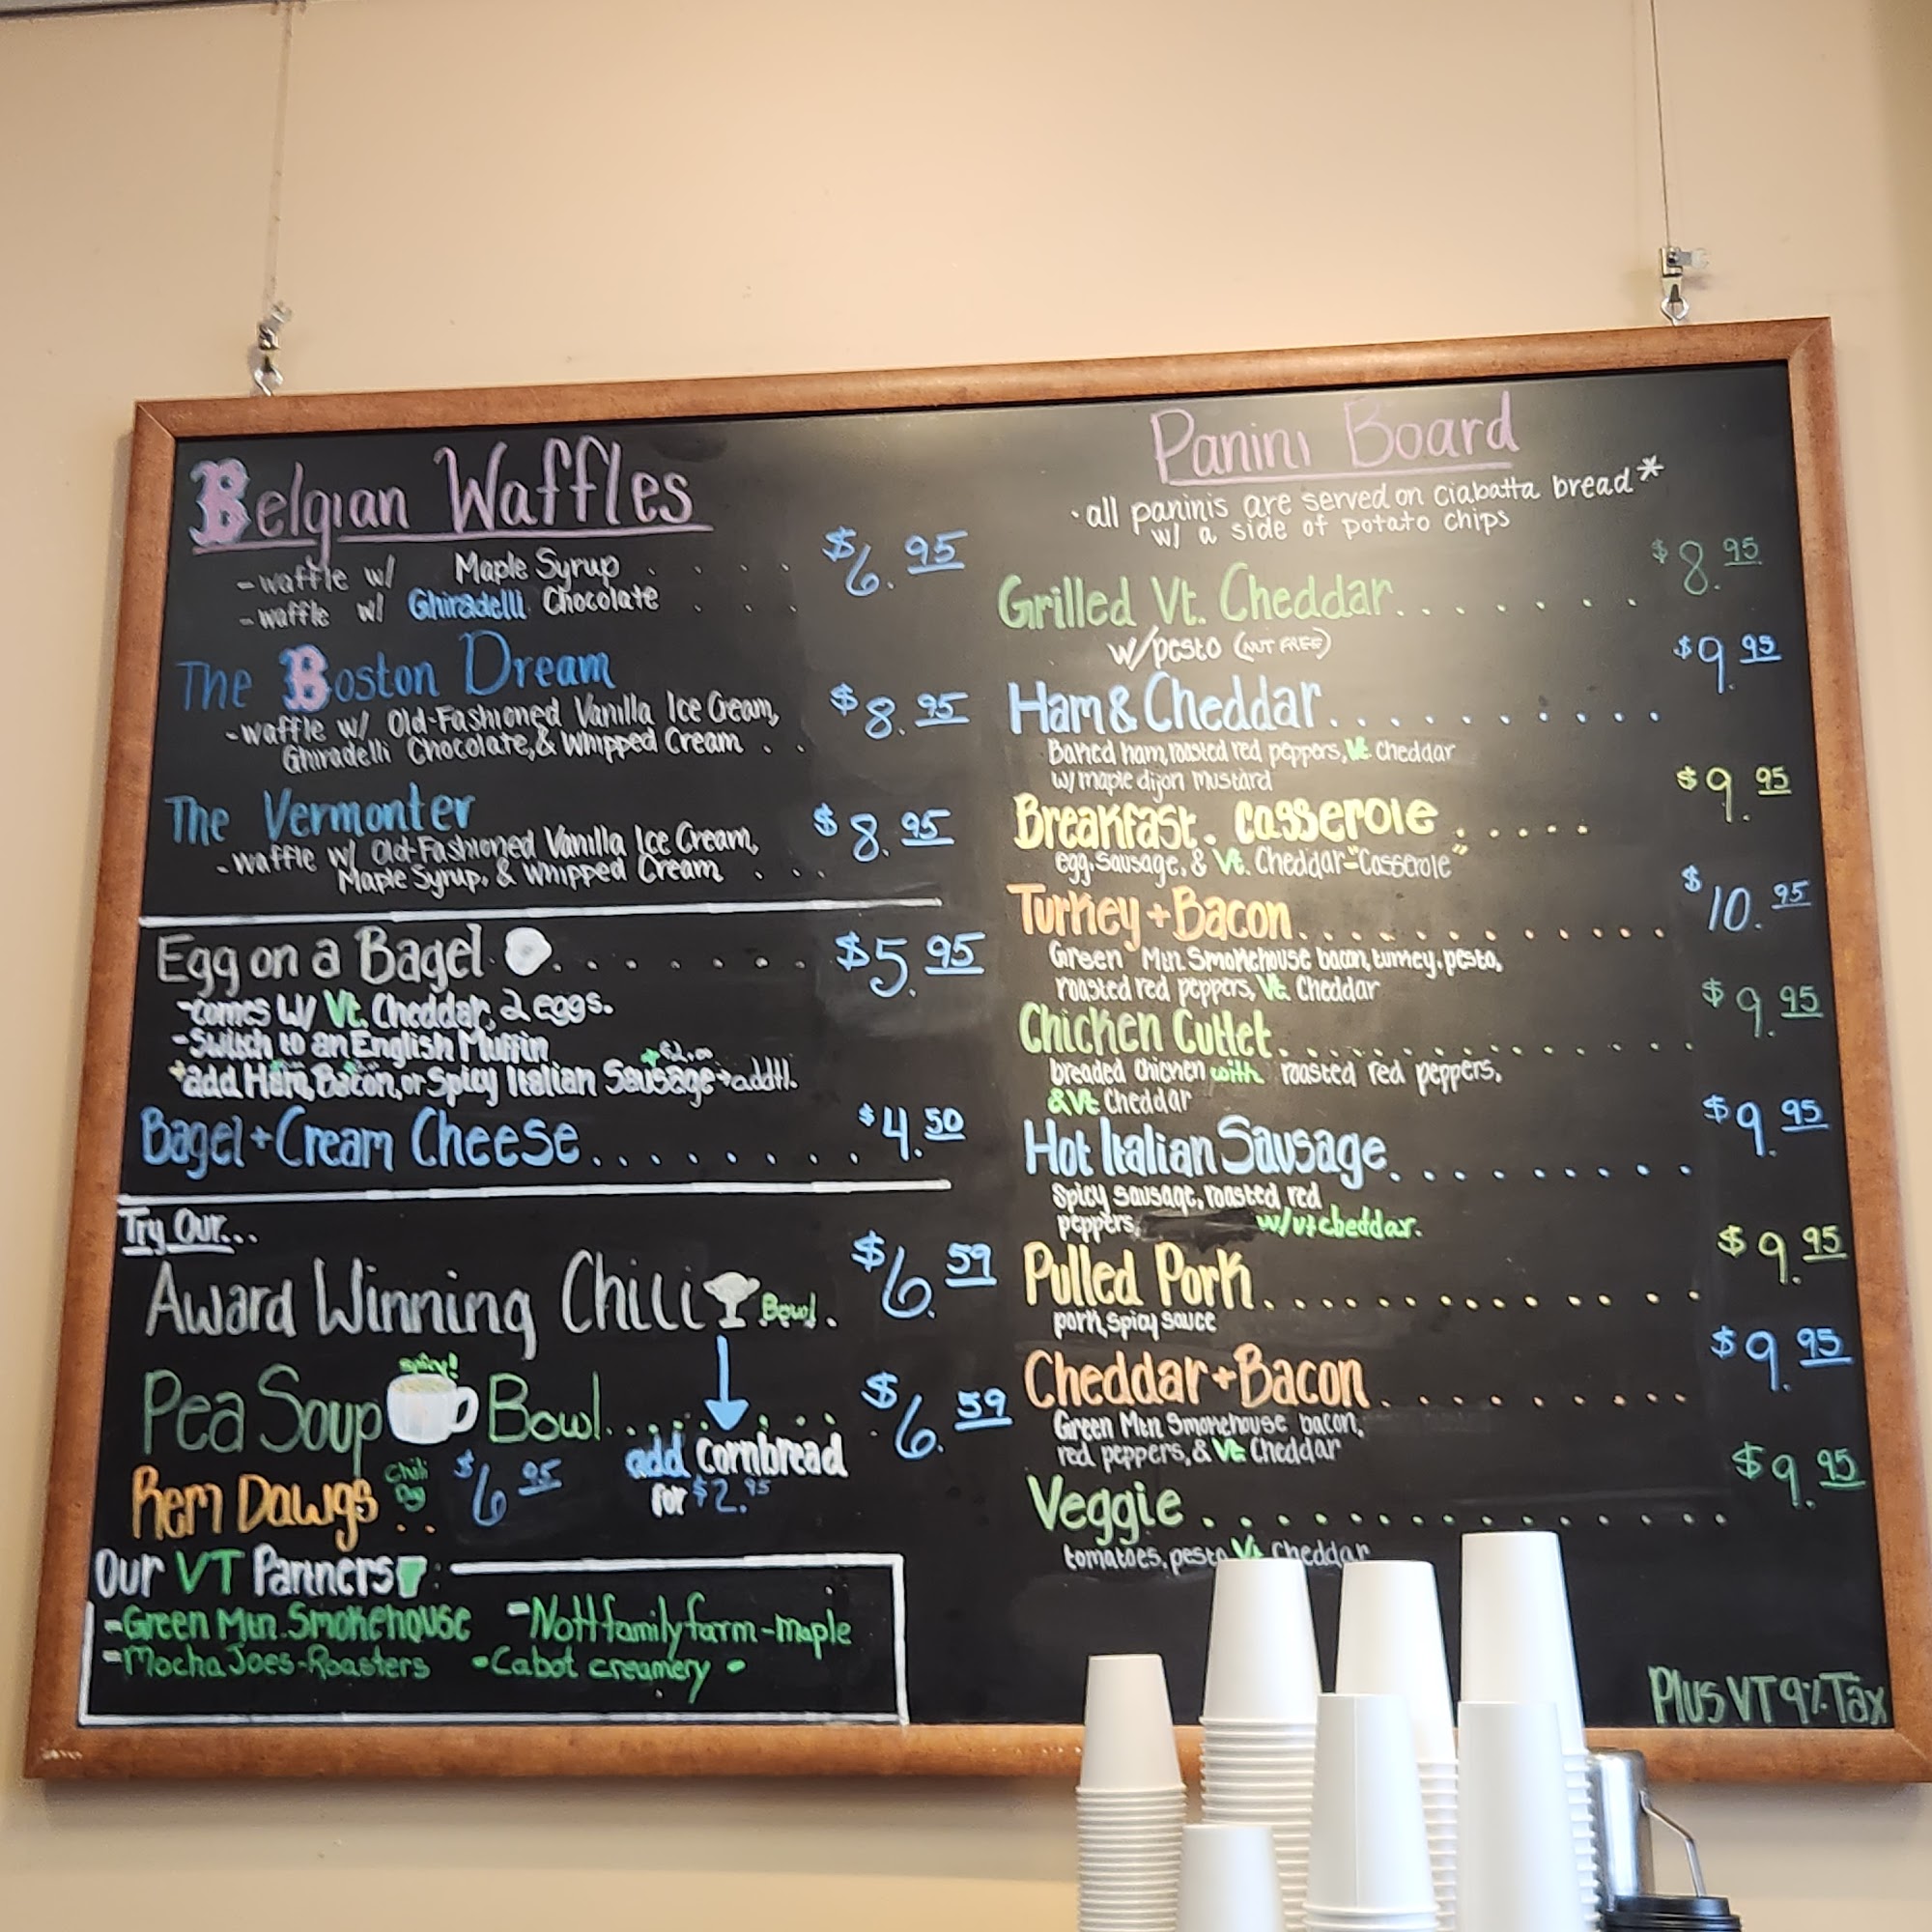 Belgian Waffles
- waffle w/ Maple Syrup . . . . $6.95
- waffle w/ Ghiradelli Chocolate . . .
The Boston Dream
- waffle w/ Old-Fashioned Vanilla Ice Cream, $8.95
Ghiradelli Chocolate, & Whipped Cream . .
The Vermonter
- waffle w/ Old-Fashioned Vanilla Ice Cream, $8.95
Maple Syrup, & Whipped Cream . . .
Egg on a Bagel . . . . . . . $5.95
-comes w/ Vt. Cheddar, 2 eggs.
-Switch to an English Muffin
+$2.00
+add Ham, Bacon, or Spicy Italian Sausage addtl.
Bagel + Cream Cheese . . . . . . . . $4.50
Try Our...
Award Winning Chili Bowl . $6.59
spicy!
Pea Soup Bowl . . . . . . . . $6.59
add cornbread
for $2.95
Rem Dawgs . . Chili Dog $6.95
Our VT Partners:
-Green Mtn. Smokehouse
-Nott family farm - maple
-Mocha Joes-Roasters
•Cabot creamery •
Panini Board
•all paninis are served on ciabatta bread*
w/ a side of potato chips
Grilled Vt. Cheddar . . . . . . . $8.95
w/pesto (NUT FREE)
Ham & Cheddar . . . . . . . . . . $9.95
Baked ham, roasted red peppers, Vt. Cheddar
w/maple dijon mustard
Breakfast. Casserole . . . . . $9.95
egg, sausage, & Vt. Cheddar-"Casserole"
Turkey + Bacon . . . . . . . . . . . . $10.95
Green Mtn. Smokehouse bacon, turkey, pesto,
roasted red peppers, Vt. Cheddar
Chicken Cutlet . . . . . . . . . . . . . . $9.95
breaded chicken with roasted red peppers,
& Vt Cheddar
Hot Italian Sausage . . . . . . . . . $9.95
Spicy sausage, roasted red
peppers, w/vt cheddar.
Pulled Pork . . . . . . . . . . . . . . $9.95
pork, spicy sauce
Cheddar + Bacon . . . . . . . . . . $9.95
Green Mtn Smokehouse bacon,
red peppers, & Vt Cheddar
Veggie . . . . . . . . . . . . . . . . $9.95
tomatoes, pesto, Vt Cheddar
Plus VT 9% Tax